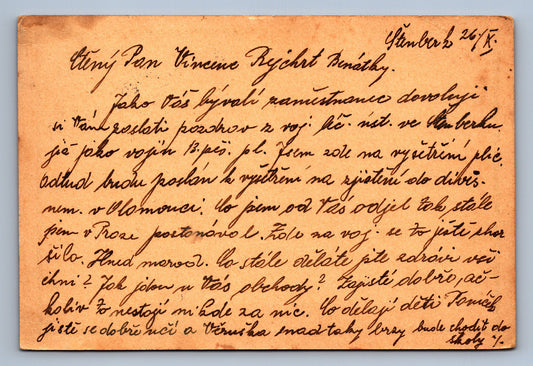 Štenberk 26/X.
Ctěný Pan Vincenc Rýchrt Benátky.
Jako Vás bývalí zaměstnanec dovoluji
si Vám zaslati pozdrov z voj. léč. úst. ve Štenberku
já jako vojín 13. pěš. pl. Jsem zde na vyšetření plic.
Odtud budu poslán k vyšetřem na zjištění do divis.
nem. v Olomouci. Co jsem od Vás odjel tak stále
jsem v Praze postonával. Zde za voj. se to ještě zhor
šilo. Co stále děláte jste zdrávi vši
chni? Jak jdou u Vás obchody? Zajisté dobře, ač-
koliv to nestojí nikde za nic. Co dělají děti Toníček
jistě se dobře učí a Věruška snad taky brzy bude chodit do
školy